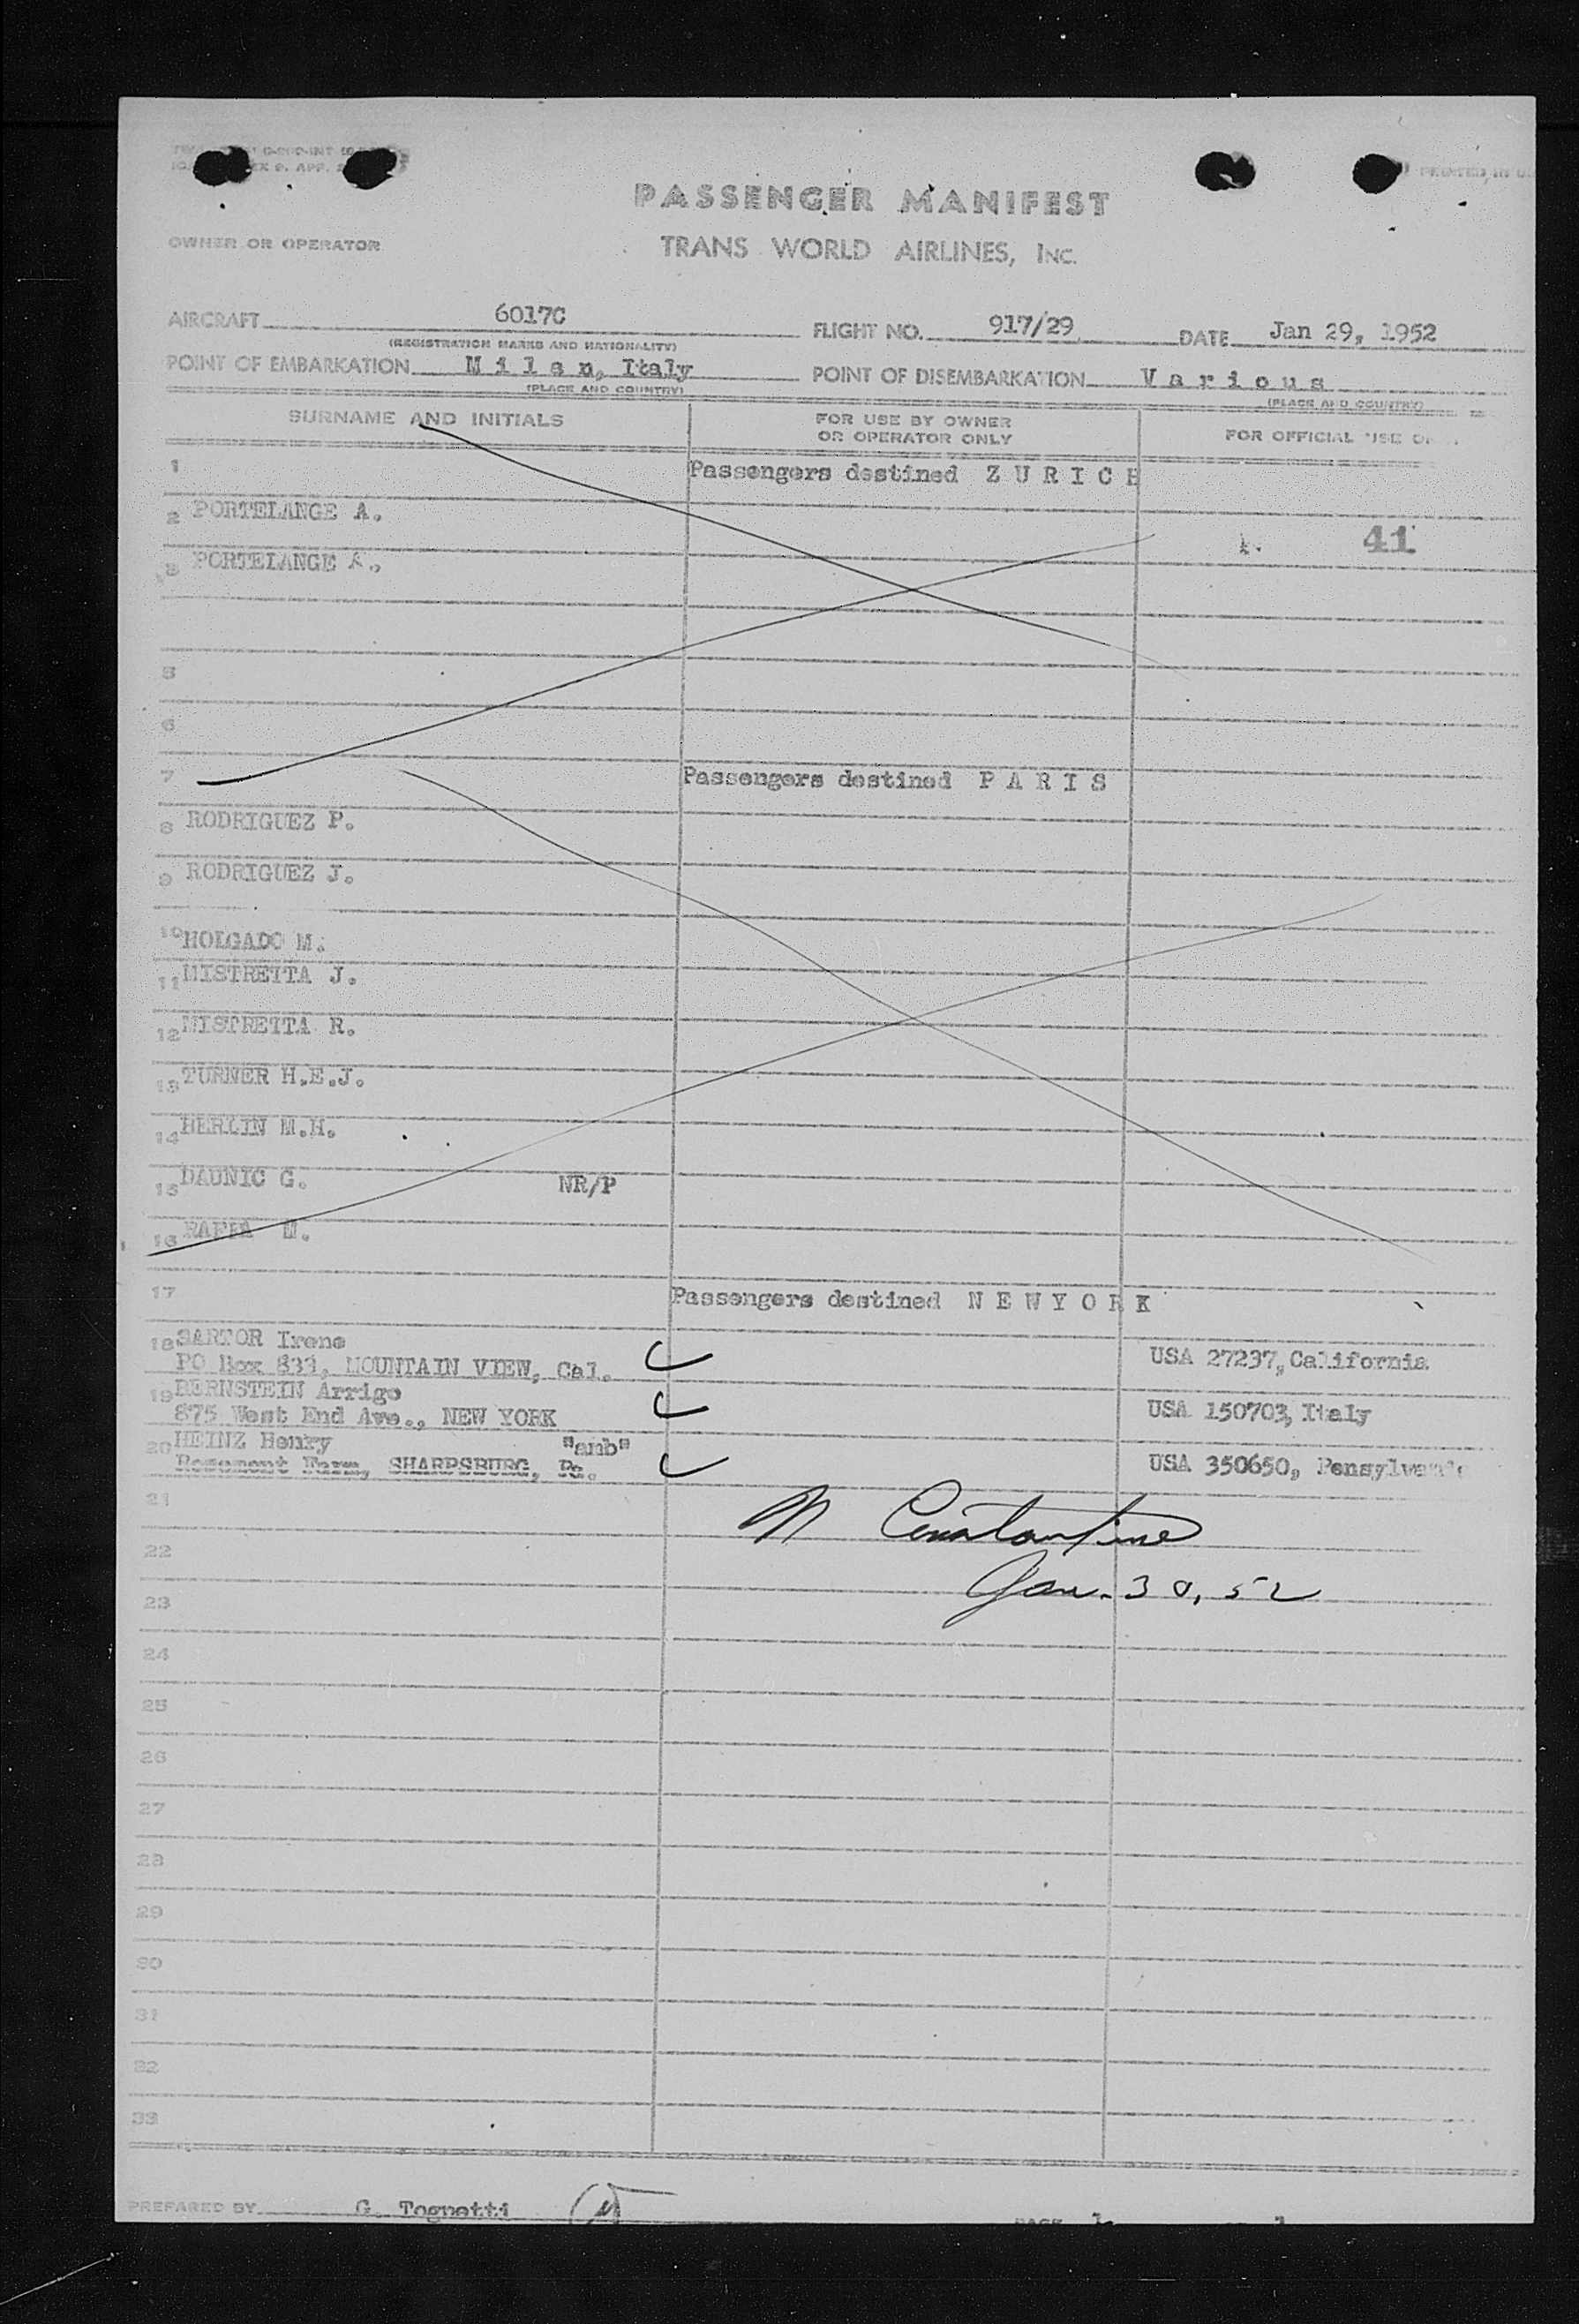 PASSENGER MANIFEST
OWNER OR OPERATOR
TRANS WORLD AIRLINES, INC.
AIRCRAFT 6017C FLIGHT NO. 917/29 DATE Jan 29, 1952
(REGISTRATION MARKS AND NATIONALITY)
POINT OF EMBARKATION M i l a n, Italy POINT OF DISEMBARKATION V a r i o u s
(PLACE AND COUNTRY) (PLACE AND COUNTRY)
SURNAME AND INITIALS FOR USE BY OWNER OR OPERATOR ONLY FOR OFFICIAL USE
1 Passengers destined Z U R I C H
2 PORTELANGE A.
41
3 PORTELANGE A.
5
6
7 Passengers destined P A R I S
8 RODRIGUEZ P.
9 RODRIGUEZ J.
10 HOLGADO M.
11 MISTRETTA J.
12 MISTRETTA R.
13 TURNER H.E.J.
14 BERLIN M.H.
15 DAUNIC G. NR/P
16 M.
17 Passengers destined N E W Y O R K
18 SARTOR Irene
PO Box 833, MOUNTAIN VIEW, Cal. USA 27237, California
19 BERNSTEIN Arrigo
875 West End Ave., NEW YORK USA 150703, Italy
20 HEINZ Henry "amb"
Rosemont Farm, SHARPSBURG, Pa. USA 350650,
21
N Constantine
22
Jan. 30, 52
23
24
25
26
27
28
29
30
31
32
33
PREPARED BY G. Tognetti PAGE 1